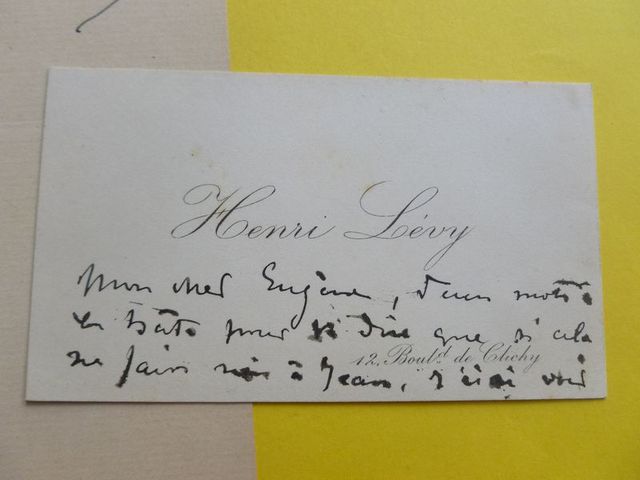 Henri Lévy
Mon cher Eugène, deux mots
en hâte pour te dire que si cela
12, Boulᵈ. de Clichy
ne fais rien à Jean, j'irai voir